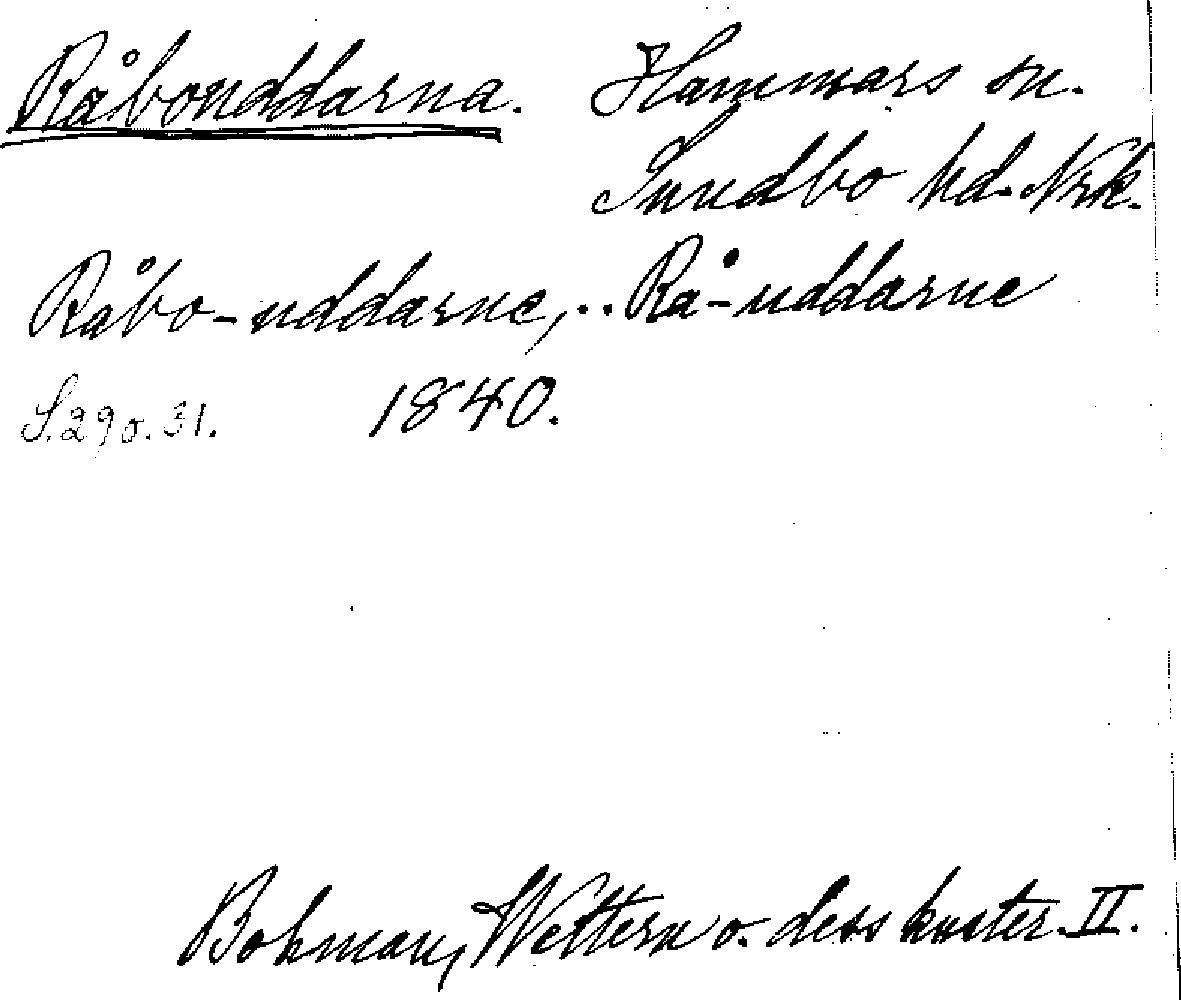 Råbouddarna. Hammars sn.
Sundbo hd. Nrk.
Råbo-uddarne, .. Rå-uddarne
S. 29 o. 31. 1840.
Bohman, Wettern o. dess kuster. II.